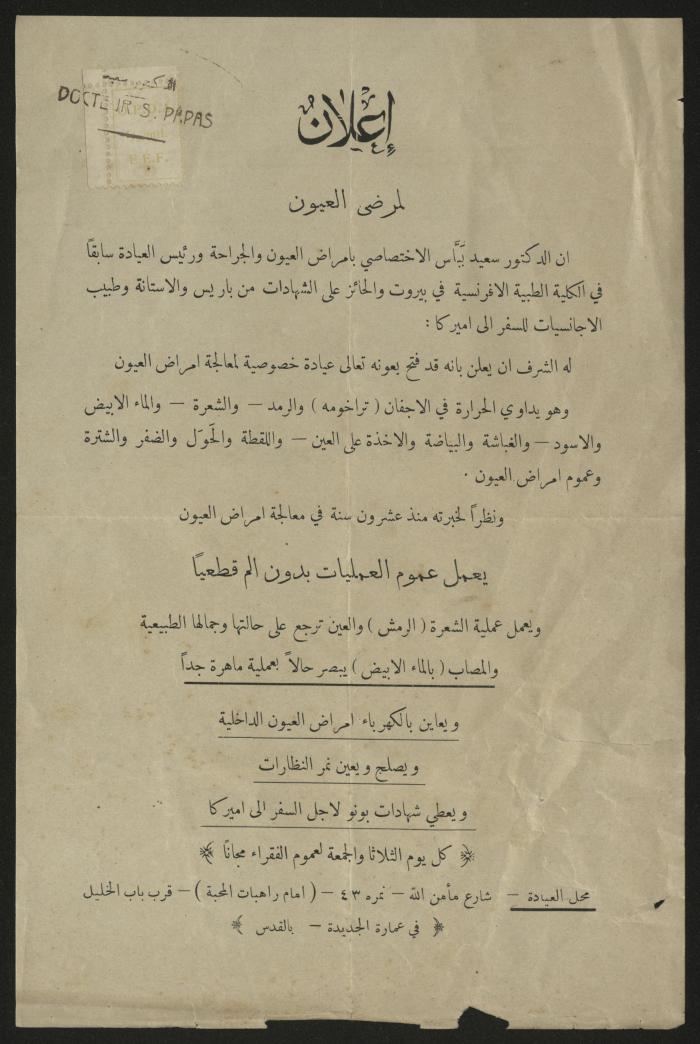 DOCTEUR S. PAPAS
E.E.F.
إعلان
لمرضى العيون
ان الدكتور سعيد بَبَّاس الاختصاصي بامراض العيون والجراحة ورئيس العيادة سابقاً
في الكلية الطبية الافرنسية في بيروت والحائز على الشهادات من باريس والاستانة وطبيب
الاجانسيات للسفر الى اميركا :
له الشرف ان يعلن بانه قد فتح بعونه تعالى عيادة خصوصية لمعالجة امراض العيون
وهو يداوي الحرارة في الاجفان ( تراخومه ) والرمد — والشعرة — والماء الابيض
والاسود — والغباشة والبياضة والاخذة على العين — واللقطة والحَوَل والضفر والشترة
وعموم امراض العيون .
ونظراً لخبرته منذ عشرون سنة في معالجة امراض العيون
يعمل عموم العمليات بدون الم قطعياً
ويعمل عملية الشعرة ( الرمش ) والعين ترجع على حالتها وجمالها الطبيعية
والمصاب ( بالماء الابيض ) يبصر حالاً بعملية ماهرة جداً
ويعاين بالكهرباء امراض العيون الداخلية
ويصلح ويعين نمر النظارات
ويعطي شهادات بونو لاجل السفر الى اميركا
كل يوم الثلاثا والجمعة لعموم الفقراء مجاناً
محل العيادة — شارع مأمن الله — نمره ٤٣ — ( امام راهبات المحبة ) — قرب باب الخليل
في عمارة الجديدة — بالقدس